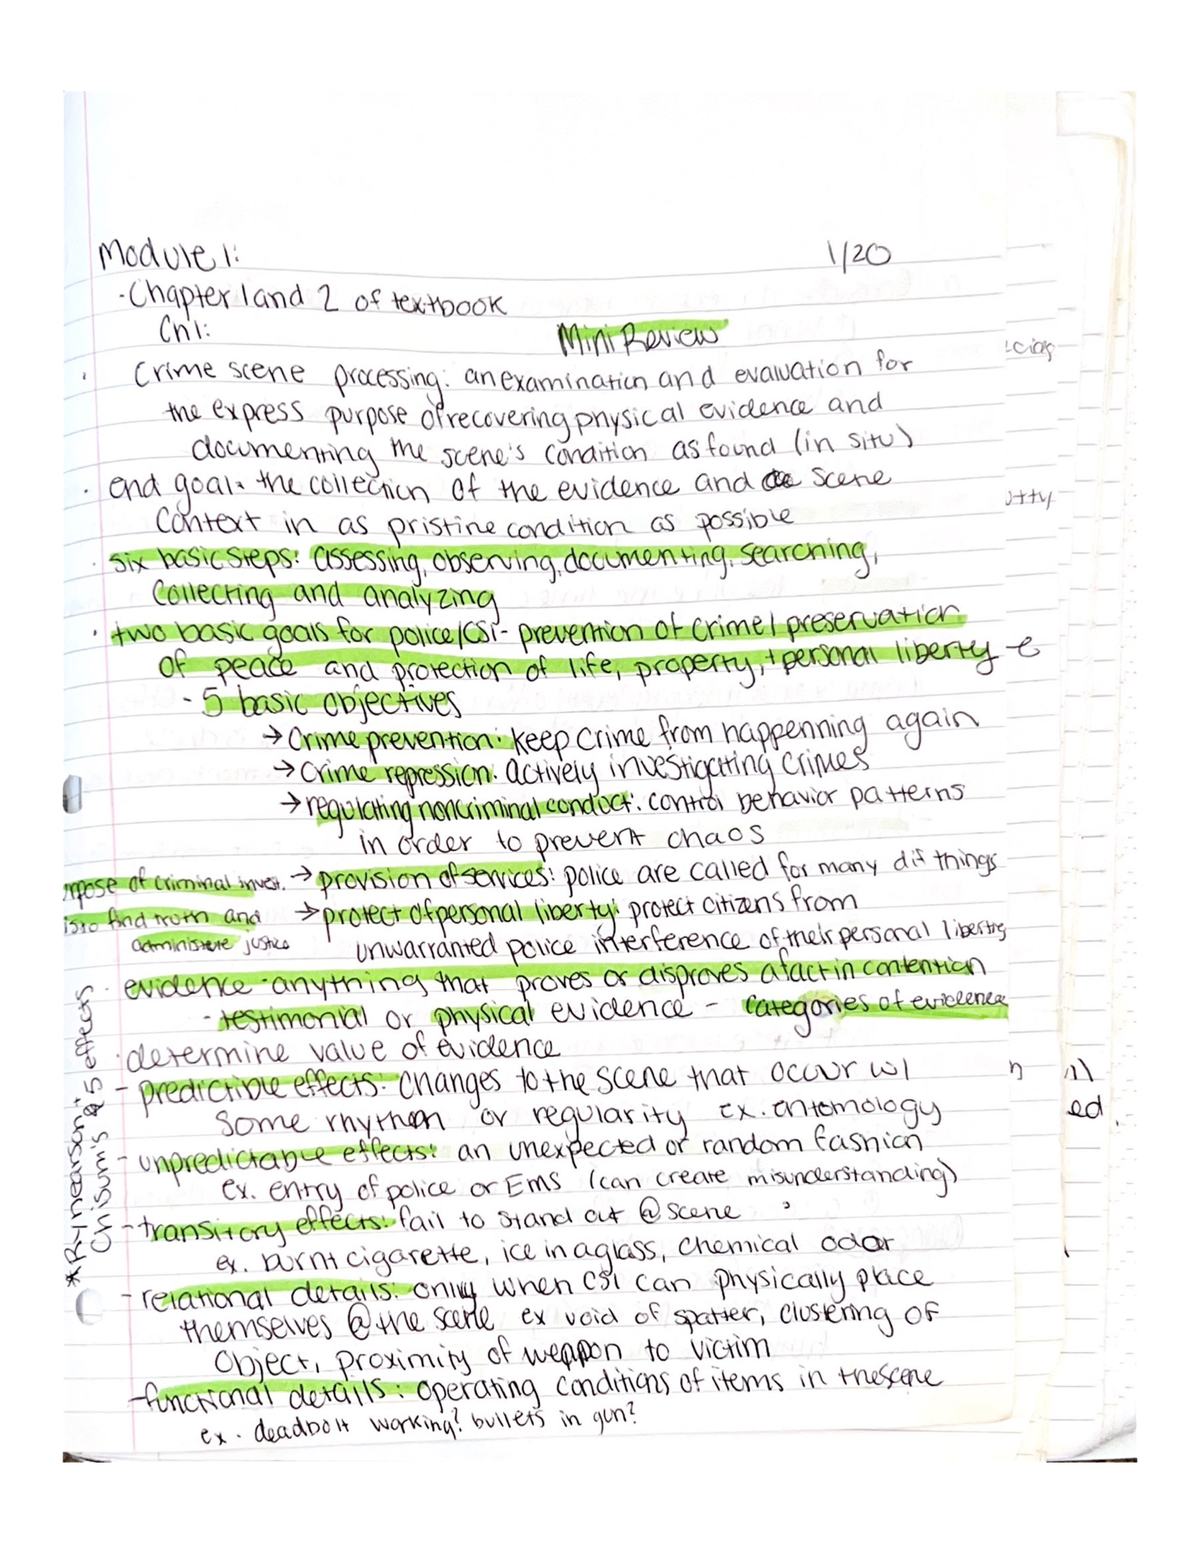 Module 1: 1/20
· Chapter 1 and 2 of textbook
Ch1:
Mini Review
· Crime scene processing: an examination and evaluation for
the express purpose of recovering physical evidence and
documenting the scene's condition as found (in situ)
· end goal: the collection of the evidence and scene
context in as pristine condition as possible
· six basic steps: assessing, observing, documenting, searching,
collecting and analyzing
· two basic goals for police/CSI - prevention of crime/preservation
of peace and protection of life, property, + personal liberty
- 5 basic objectives
→ Crime prevention: keep crime from happenning again
→ Crime repression: actively investigating crimes
→ regulating noncriminal conduct: control behavior patterns
in order to prevent chaos
→ provision of services: police are called for many dif things
→ protect of personal liberty: protect citizens from
unwarranted police interference of their personal liberties
rpose of criminal invest.
is to find truth and
administere justice
· evidence - anything that proves or disproves a fact in contention
- testimonial or physical evidence - categories of evidence
· determine value of evidence
- predictible effects: changes to the scene that occur w/
some rhythm or regularity ex. entomology
- unpredictable effects: an unexpected or random fashion
ex. entry of police or EMS (can create misunderstanding)
- transitory effects: fail to stand out @ scene
ex. burnt cigarette, ice in a glass, chemical odor
- relational details: only when CSI can physically place
themselves @ the scene ex void of spatter, clustering of
object, proximity of weapon to victim
- functional details: operating conditions of items in the scene
ex. deadbolt working? bullets in gun?
* Rynearson +
Chisum's 5 effects
ed